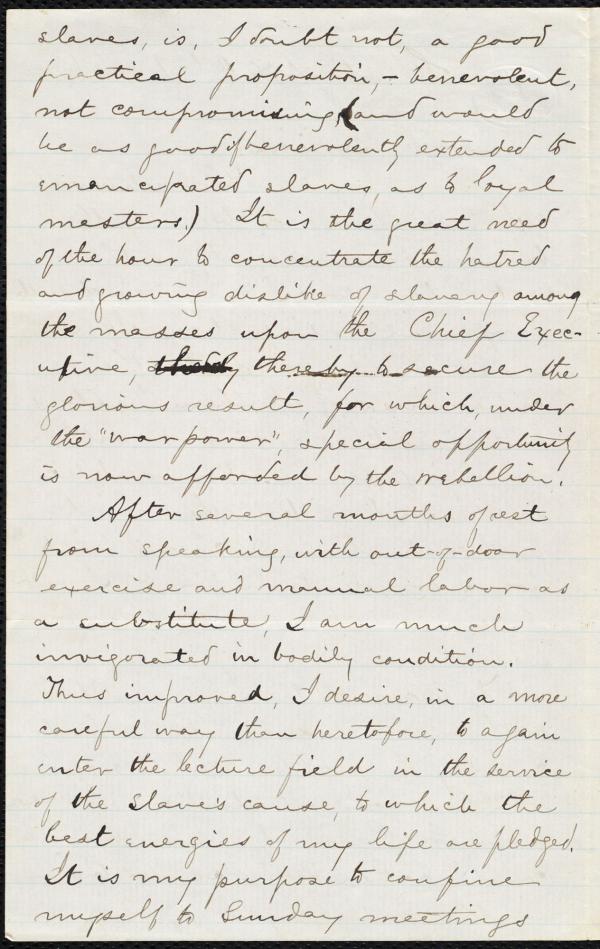 slaves, is, I doubt not, a good
practical proposition, - benevolent,
not compromising, (and would
be as good if benevolently extended to
emancipated slaves, as to loyal
masters.) It is the great need
of the hour to concentrate the hatred
and growing dislike of slavery among
the masses upon the Chief Exec-
utive, thereby to secure the
glorious result, for which, under
the "war power", special opportunity
is now afforded by the rebellion.
After several months of rest
from speaking, with out-of-door
exercise and manual labor as
a substitute, I am much
invigorated in bodily condition.
Thus improved, I desire, in a more
careful way than heretofore, to again
enter the lecture field in the service
of the Slave's cause, to which the
best energies of my life are pledged.
It is my purpose to confine
myself to Sunday meetings